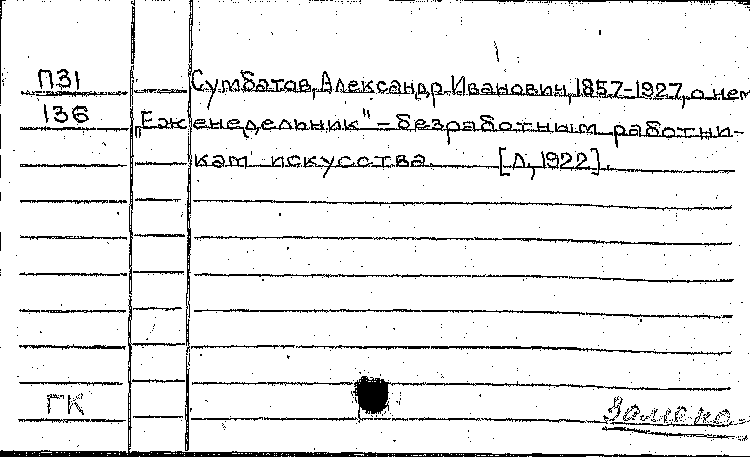 П31 Сумбатов, Александр Иванович, 1857-1927, о нем
136 "Еженедельник" - безработным работни-
кам искусства. [Л, 1922].
ГК Замена